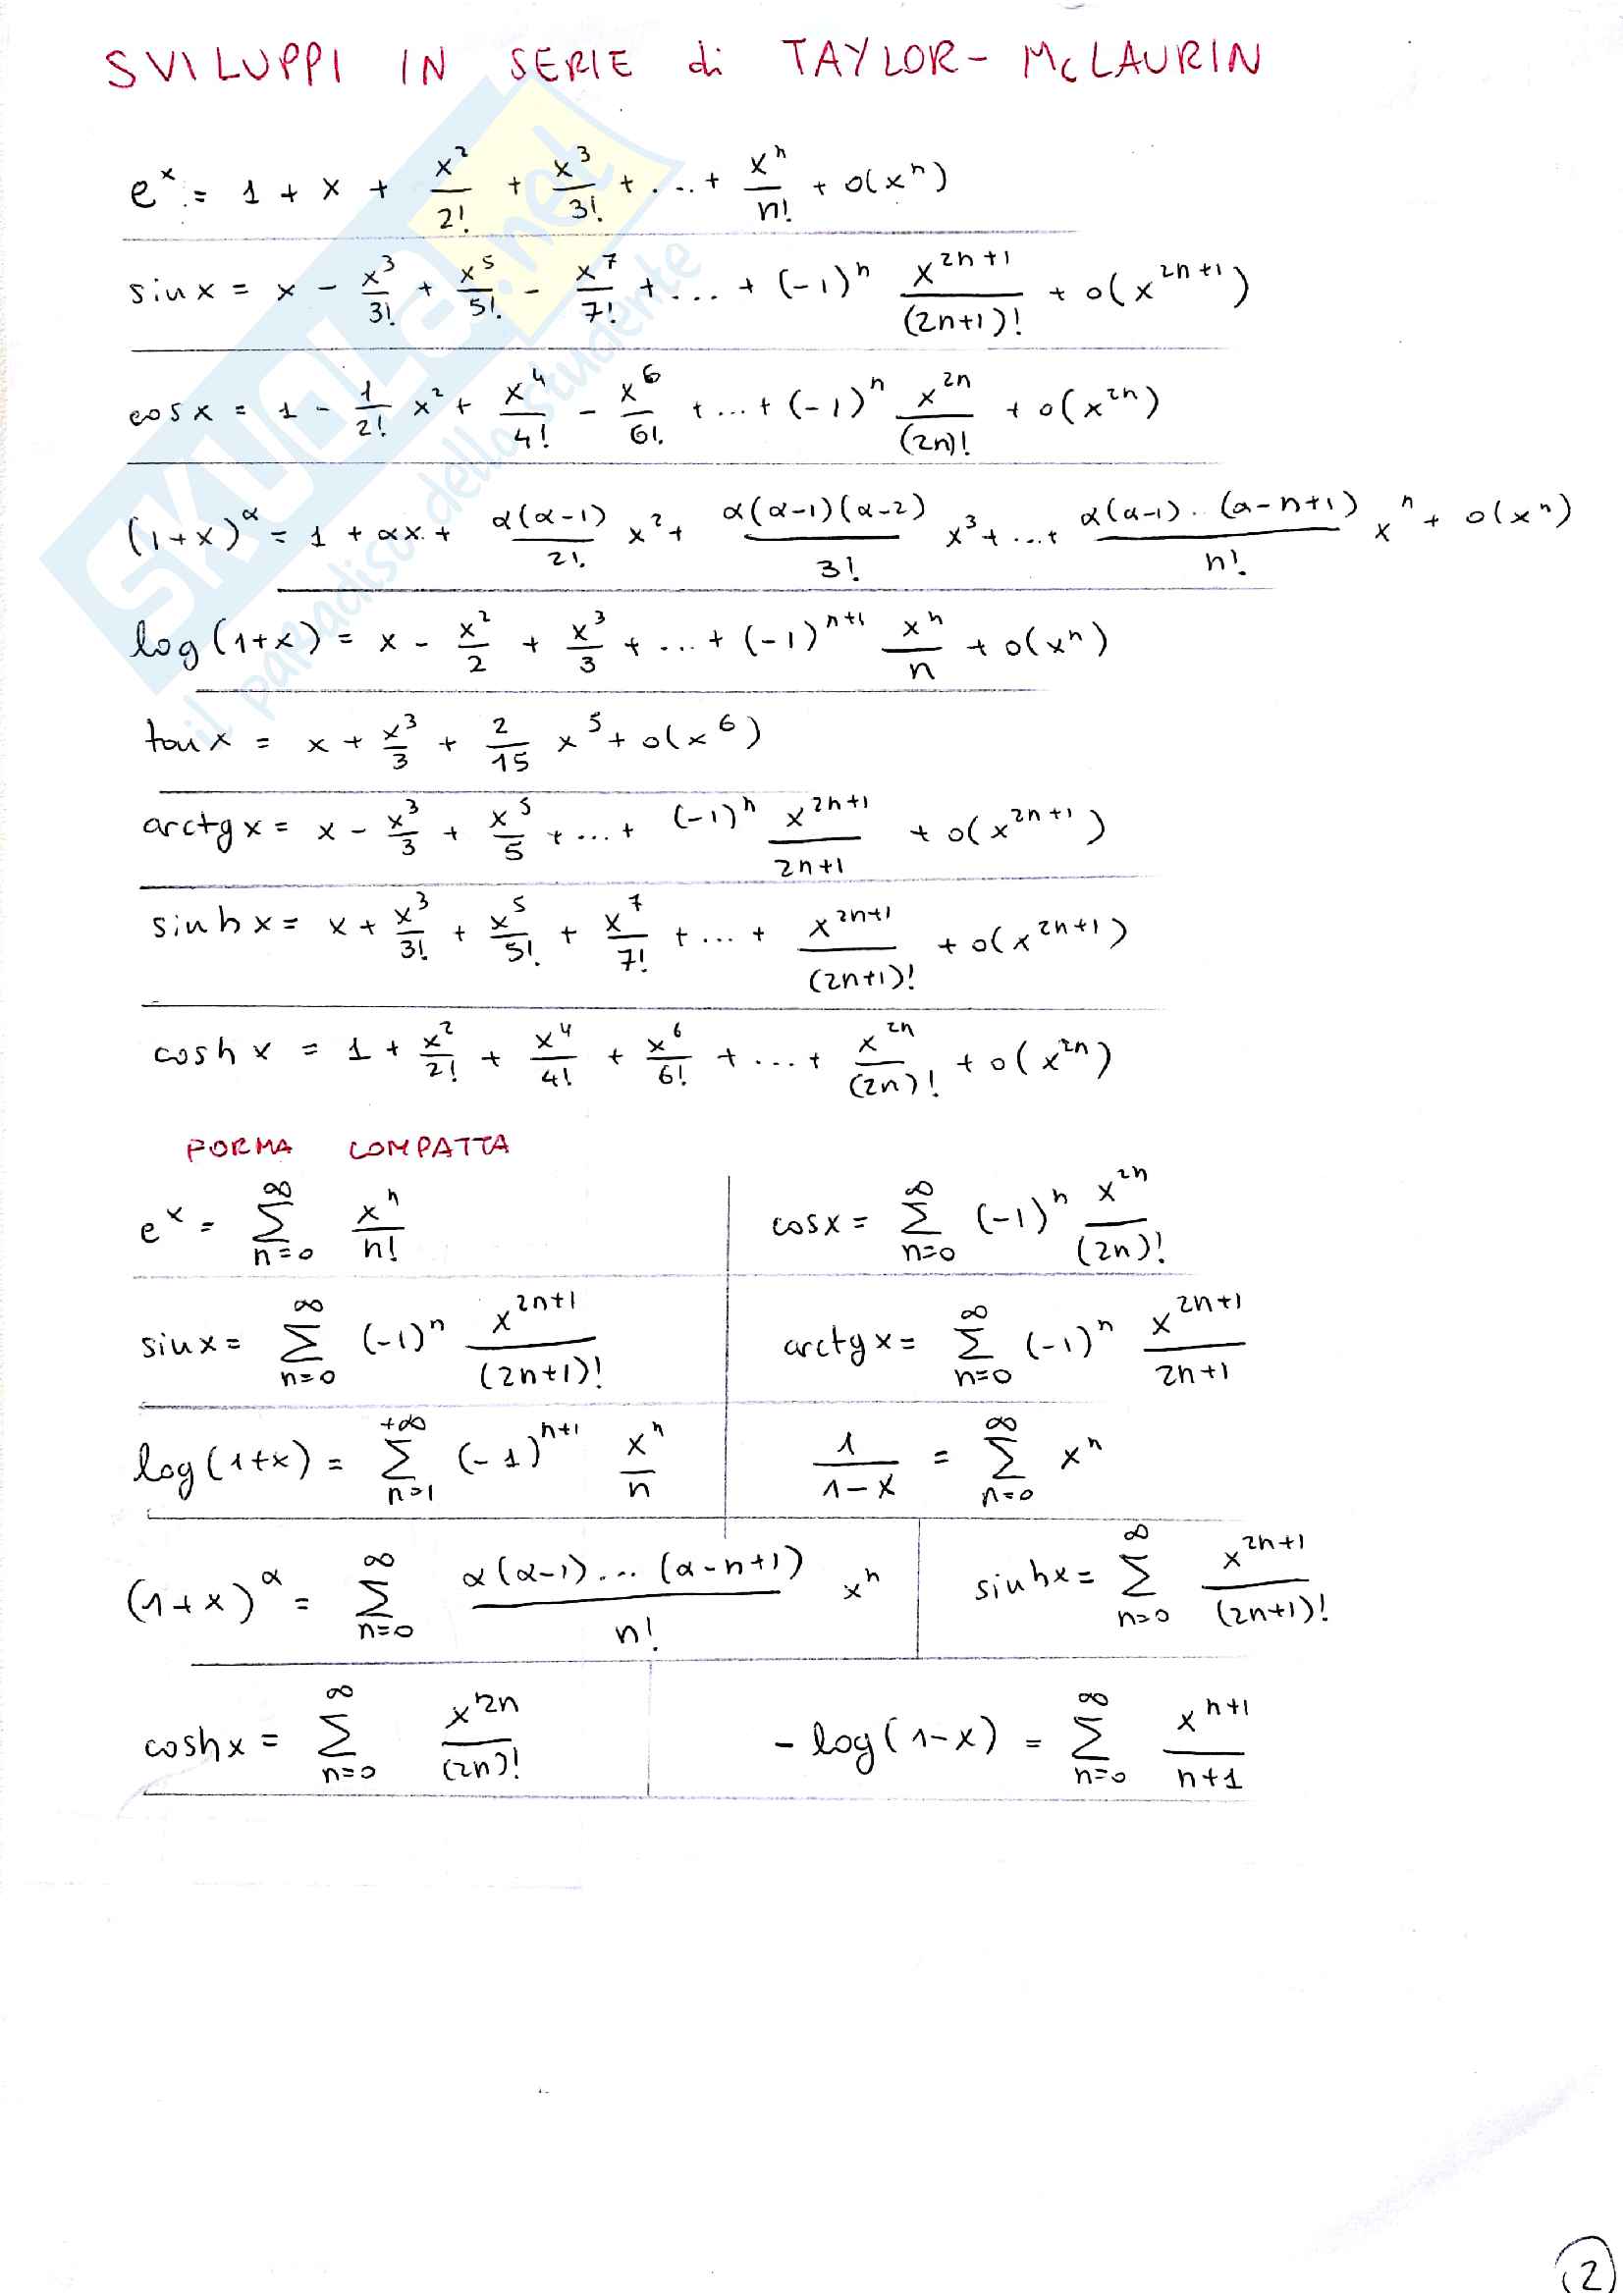 SVILUPPI IN SERIE di TAYLOR - McLAURIN
e^x = 1 + x + x^2/2! + x^3/3! + ... + x^n/n! + o(x^n)
sin x = x - x^3/3! + x^5/5! - x^7/7! + ... + (-1)^n x^(2n+1)/(2n+1)! + o(x^(2n+1))
cos x = 1 - 1/2! x^2 + x^4/4! - x^6/6! + ... + (-1)^n x^(2n)/(2n)! + o(x^(2n))
(1+x)^α = 1 + αx + α(α-1)/2! x^2 + α(α-1)(α-2)/3! x^3 + ... + α(α-1)..(α-n+1)/n! x^n + o(x^n)
log(1+x) = x - x^2/2 + x^3/3 + ... + (-1)^(n+1) x^n/n + o(x^n)
tan x = x + x^3/3 + 2/15 x^5 + o(x^6)
arctg x = x - x^3/3 + x^5/5 + ... + (-1)^n x^(2n+1)/2n+1 + o(x^(2n+1))
sinh x = x + x^3/3! + x^5/5! + x^7/7! + ... + x^(2n+1)/(2n+1)! + o(x^(2n+1))
cosh x = 1 + x^2/2! + x^4/4! + x^6/6! + ... + x^(2n)/(2n)! + o(x^(2n))
FORMA COMPATTA
e^x = ∑_(n=0)^∞ x^n/n!
cos x = ∑_(n=0)^∞ (-1)^n x^(2n)/(2n)!
sin x = ∑_(n=0)^∞ (-1)^n x^(2n+1)/(2n+1)!
arctg x = ∑_(n=0)^∞ (-1)^n x^(2n+1)/2n+1
log(1+x) = ∑_(n=1)^(+∞) (-1)^(n+1) x^n/n
1/1-x = ∑_(n=0)^∞ x^n
(1+x)^α = ∑_(n=0)^∞ α(α-1)...(α-n+1)/n! x^n
sinh x = ∑_(n=0)^∞ x^(2n+1)/(2n+1)!
cosh x = ∑_(n=0)^∞ x^(2n)/(2n)!
-log(1-x) = ∑_(n=0)^∞ x^(n+1)/n+1
2
SKUOLA.net
il paradiso dello studente